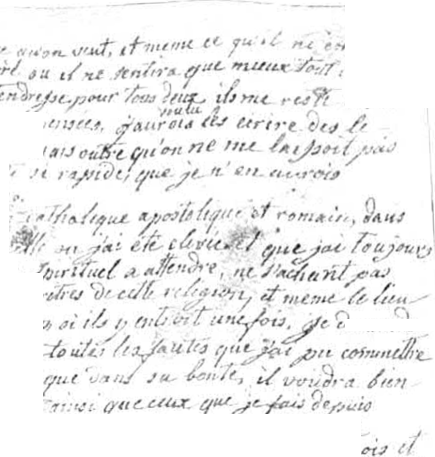 qu'on veut, et meme ce qu'il ne
ou il ne sentira que mieux tout
tendresse pour tous deux ils me reste
pensées, j'aurois voulu les ecrire des le
mais outre qu'on ne me laissoit pas
si rapide, que je n'en aurois
catholique apostolique et romain, dans
ou j'ai été elevée et que j'ai toujours
spirituel a attendre, ne sachant pas
pretres de cette religion, et meme le lieu
si ils y entroit une fois. je d
toutes les fautes que j'ai pu commettre
que dans sa bonté, il voudra bien
ainsi que ceux que je fais depuis
ois et